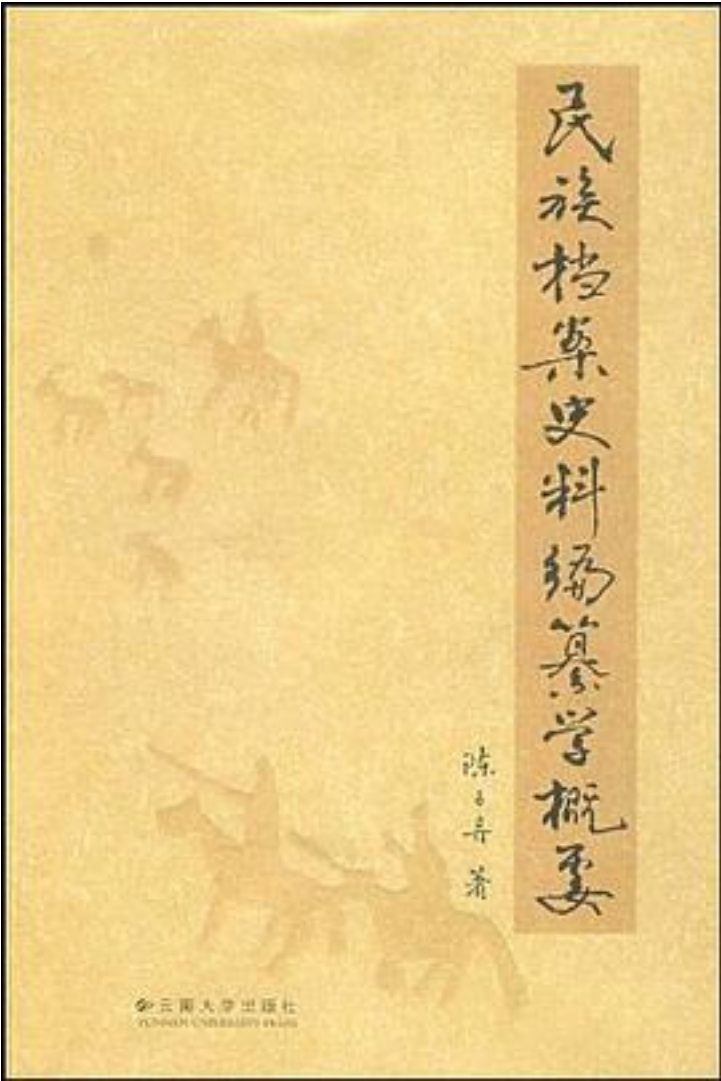 民族档案史料编纂学概要
陈子丹 著
云南大学出版社
YUNNAN UNIVERSITY PRESS